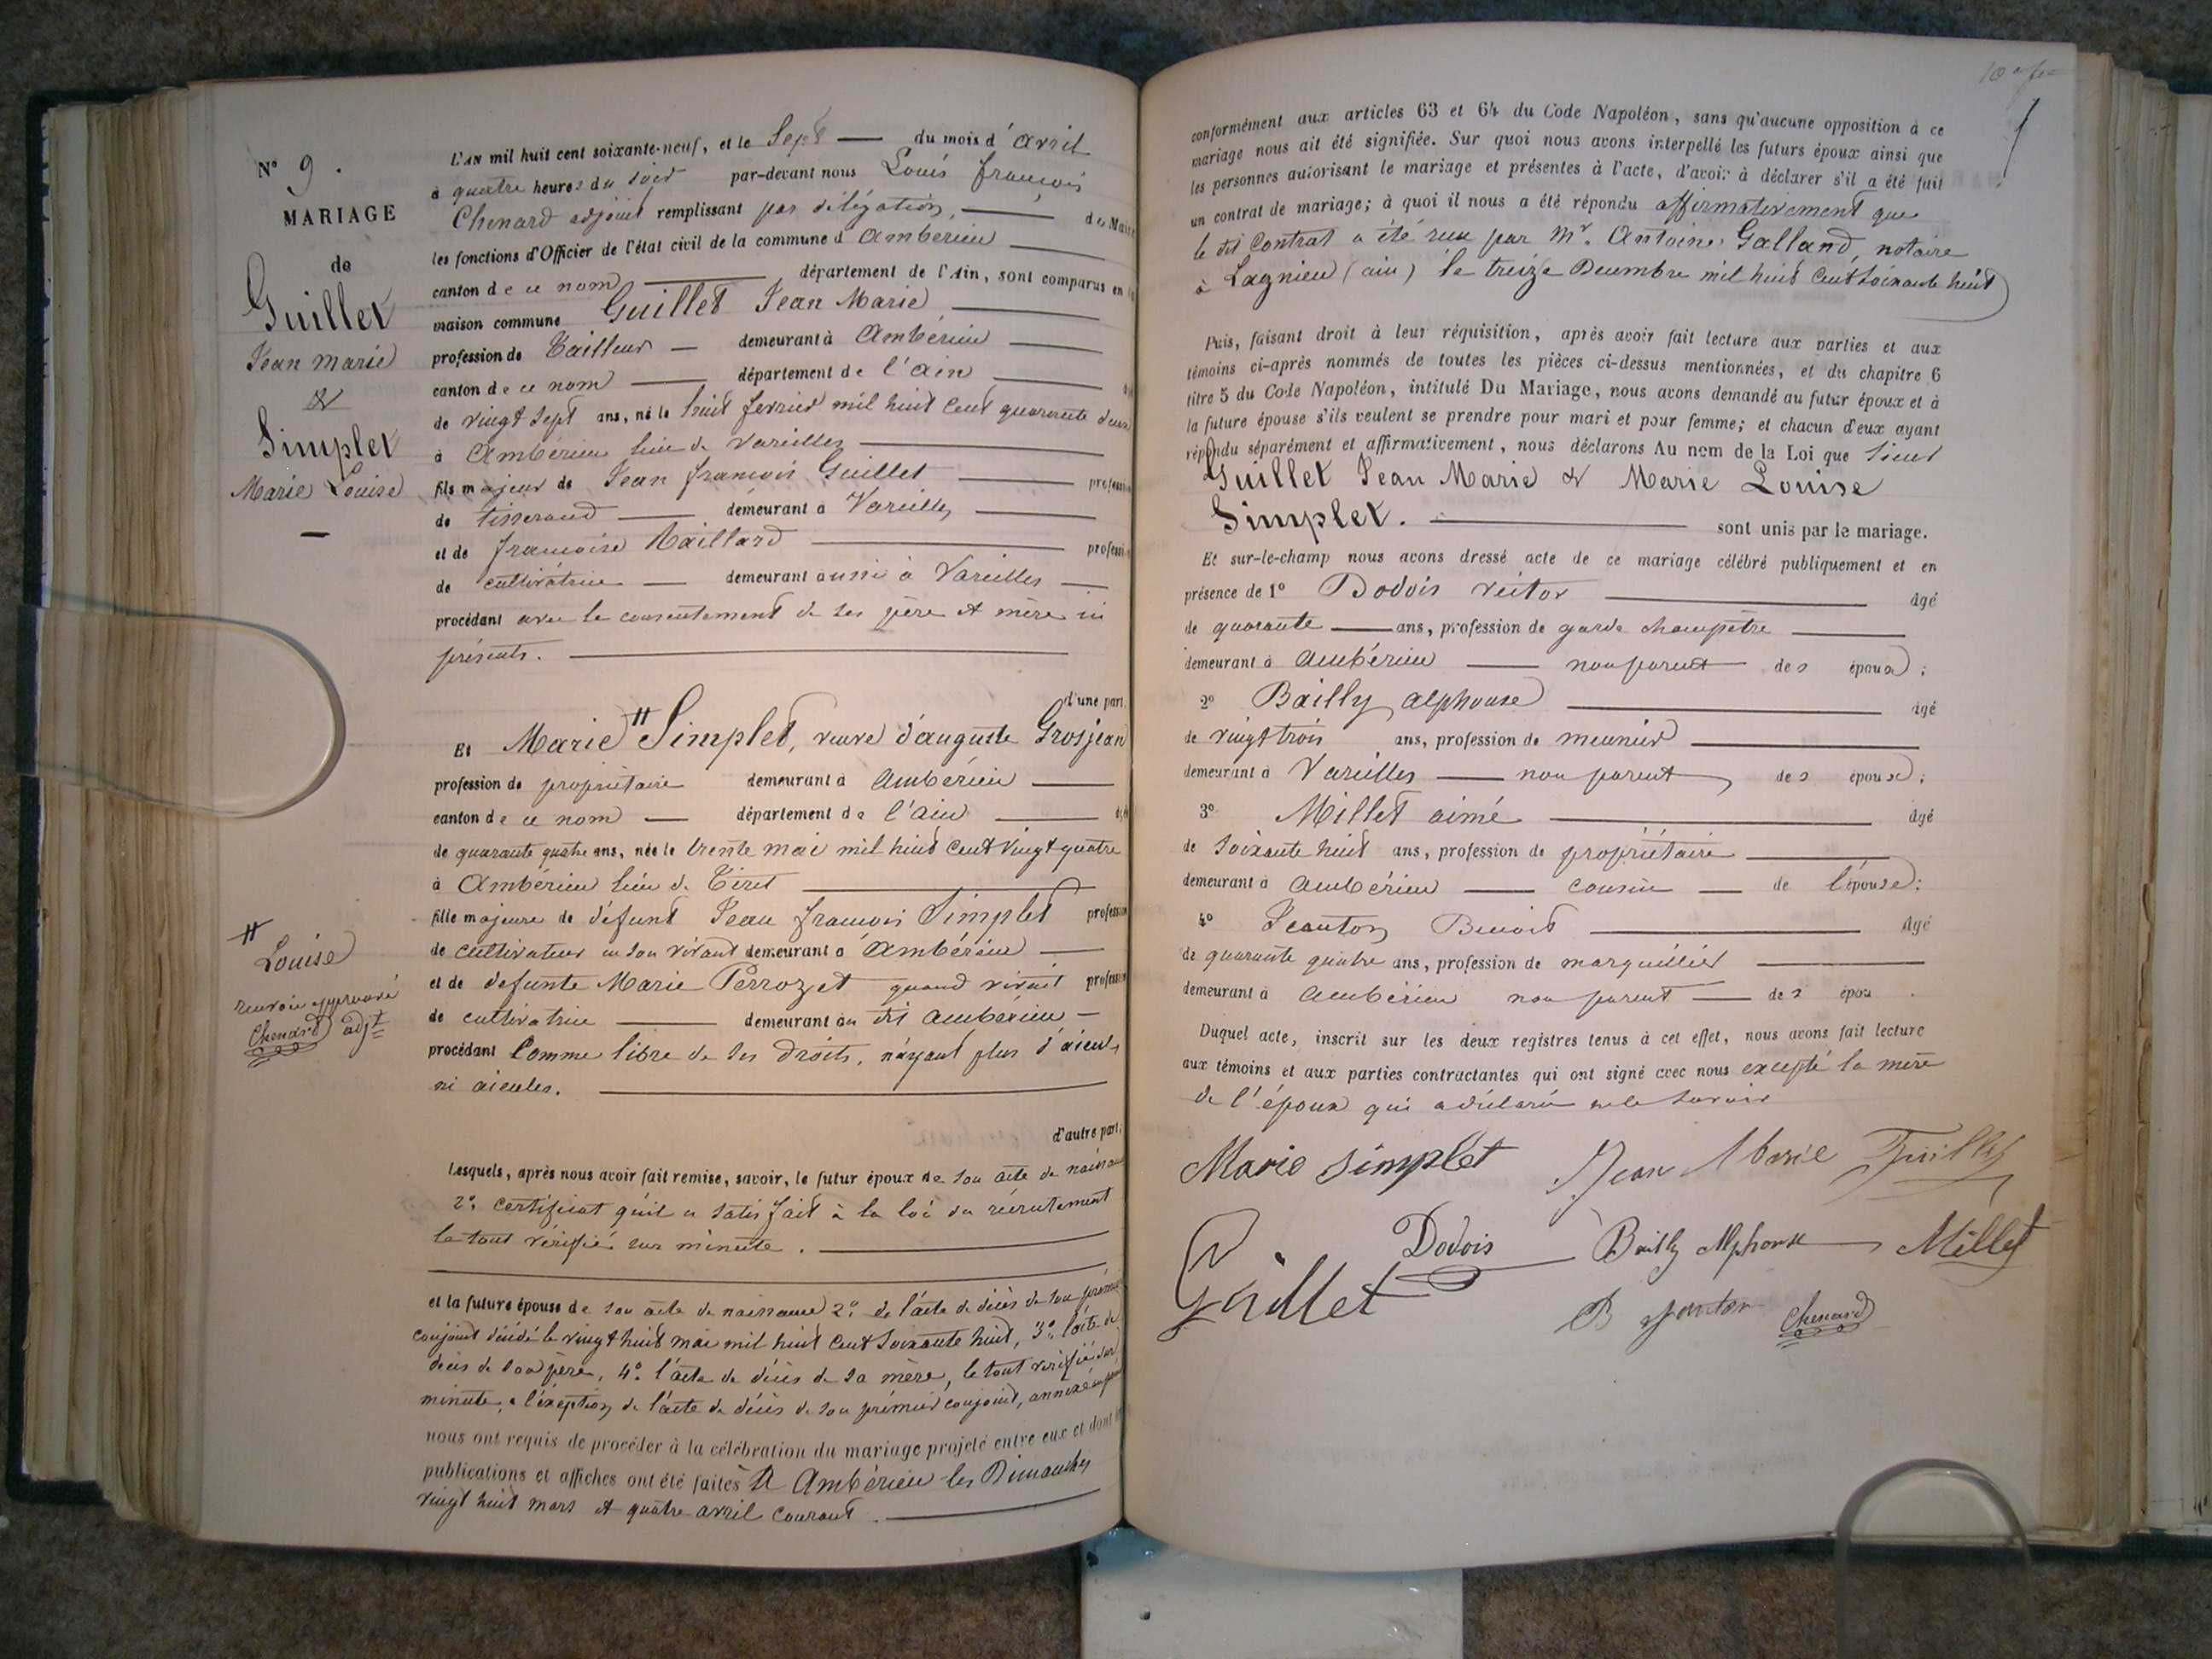 N° 9.
MARIAGE
de
Guillet
Jean Marie
&
Simplet
Marie Louise
L'AN mil huit cent soixante-neuf, et le Sept du mois d'avril
à quatre heures du soir par-devant nous Louis François
Chenard adjoint remplissant par délégation, du Maire
les fonctions d'Officier de l'état civil de la commune d'Ambérieu
canton de ce nom département de l'Ain, sont comparus en la
maison commune Guillet Jean Marie
profession de Tailleur demeurant à Ambérieu
canton de ce nom département de l'ain
de vingt sept ans, né le huit fevrier mil huit cent quarante deux
à Ambérieu lieu de Vareilles
fils majeur de Jean françois Guillet profession
de tisserand demeurant à Vareilles
et de françoise Maillard profession
de cultivatrice demeurant aussi à Vareilles
procédant avec le consentement de ses père et mère ici
présents.
d'une part,
Et Marie # Simplet, veuve d'auguste Grosjean
profession de propriétaire demeurant à Ambérieu
canton de ce nom département de l'ain
de quarante quatre ans, née le trente mai mil huit cent vingt quatre
à Ambérieu lieu de Tiret
fille majeure de défunt Jean françois Simplet profession
de cultivateur en son vivant demeurant à Ambérieu
et de defunte Marie Perrozet quand vivait profession
de cultivatrice demeurant au dit Ambérieu
procédant comme libre de ses droits, n'ayant plus d'aieuls
ni aieules.
# Louise
renvoi approuvé
Chenard adjt
d'autre part;
Lesquels, après nous avoir fait remise, savoir, le futur époux de son acte de naissance
2° certificat qu'il a satisfait à la loi du récrutement
le tout vérifié sur minute.
et la future épouse de son acte de naissance 2° de l'acte de décès de son prémier
conjoint décédé le vingt huit mai mil huit cent soixante huit, 3° l'acte de
décès de son père, 4° l'acte de décès de sa mère, le tout vérifié sur
minute, à l'éxeption de l'acte de décès de son prémier conjoint, annexé
nous ont requis de procéder à la célébration du mariage projeté entre eux et dont les
publications et affiches ont été faites à Ambérieu les Dimanches
vingt huit mars et quatre avril courant.
conformément aux articles 63 et 64 du Code Napoléon, sans qu'aucune opposition à ce
mariage nous ait été signifiée. Sur quoi nous avons interpellé les futurs époux ainsi que
les personnes autorisant le mariage et présentes à l'acte, d'avoir à déclarer s'il a été fait
un contrat de mariage; à quoi il nous a été répondu affirmativement que
le dit Contrat a été reçu par Mr. Antoine Galland, notaire
à Lagnieu (ain) le treize Decembre mil huit cent soixante huit
Puis, faisant droit à leur réquisition, après avoir fait lecture aux parties et aux
témoins ci-après nommés de toutes les pièces ci-dessus mentionnées, et du chapitre 6
titre 5 du Code Napoléon, intitulé Du Mariage, nous avons demandé au futur époux et à
la future épouse s'ils veulent se prendre pour mari et pour femme; et chacun d'eux ayant
répondu séparément et affirmativement, nous déclarons Au nom de la Loi que Sieur
Guillet Jean Marie & Marie Louise
Simplet. sont unis par le mariage.
Et sur-le-champ nous avons dressé acte de ce mariage célébré publiquement et en
présence de 1° Dodois victor âgé
de quarante ans, profession de garde champêtre
demeurant à Ambérieu non parent des époux;
2° Bailly alphonse âgé
de vingt trois ans, profession de meunier
demeurant à Vareilles non parent des époux;
3° Millet aimé âgé
de soixante huit ans, profession de propriétaire
demeurant à Ambérieu cousin de l'épouse;
4° Jeanton Benoit âgé
de quarante quatre ans, profession de marguillier
demeurant à Ambérieu non parent des épou
Duquel acte, inscrit sur les deux registres tenus à cet effet, nous avons fait lecture
aux témoins et aux parties contractantes qui ont signé avec nous excepté la mère
de l'époux qui a déclaré ne le savoir
Marie Simplet Jean Marie Guillet
Guillet Dodois Bailly Alphonse Millet
B Jeanton Chenard